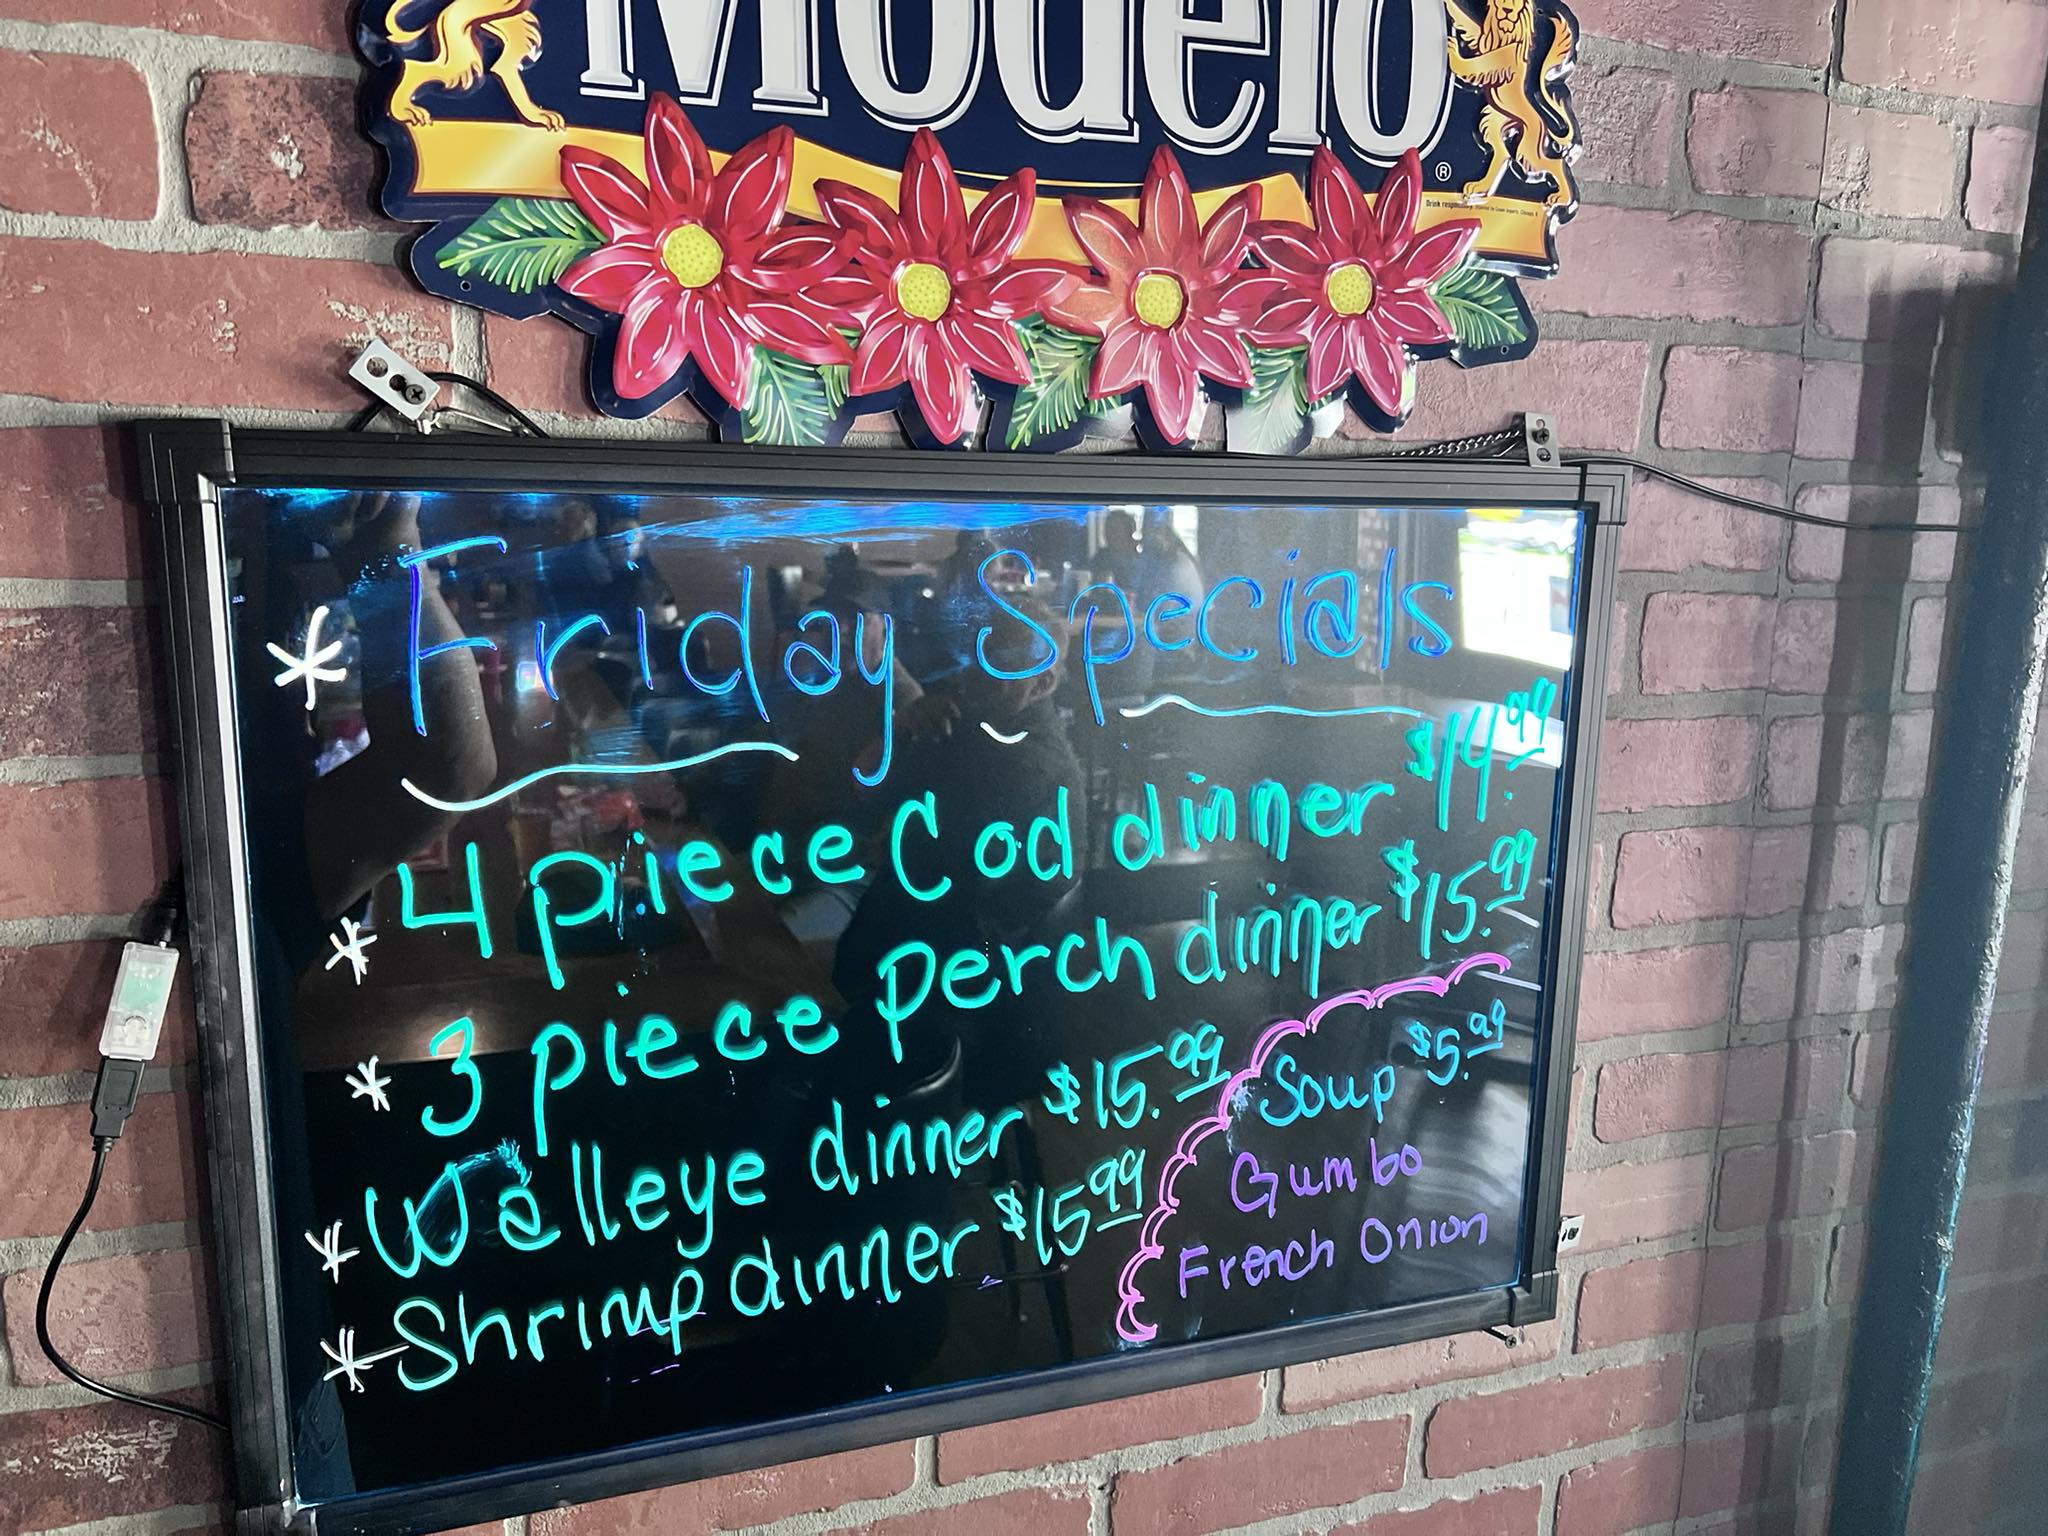 Modelo
®
* Friday Specials
* 4 piece Cod dinner $14.99
* 3 piece perch dinner $15.99
* Walleye dinner $15.99
* Shrimp dinner $15.99
Soup $5.99
Gumbo
French Onion